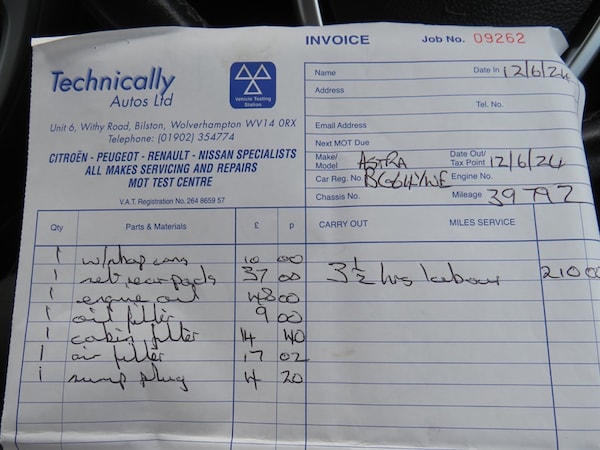 INVOICE Job No. 09262
Technically
Autos Ltd
Vehicle Testing
Station
Unit 6, Withy Road, Bilston, Wolverhampton WV14 0RX
Telephone: (01902) 354774
CITROËN - PEUGEOT - RENAULT - NISSAN SPECIALISTS
ALL MAKES SERVICING AND REPAIRS
MOT TEST CENTRE
V.A.T. Registration No. 264 8659 57
Name Date In 12/6/24
Address
Tel. No.
Email Address
Next MOT Due
Make/
Model ASTRA Date Out/
Tax Point 12/6/24
Car Reg. No. Engine No.
Chassis No. Mileage 39797
Qty Parts & Materials £ p CARRY OUT MILES SERVICE
1 10 00
1 set rear pads 37 00 3 1/2 hrs labour 210 00
1 engine oil 48 00
1 oil filter 9 00
1 cabin filter 14 40
1 air filter 17 02
1 sump plug 4 20